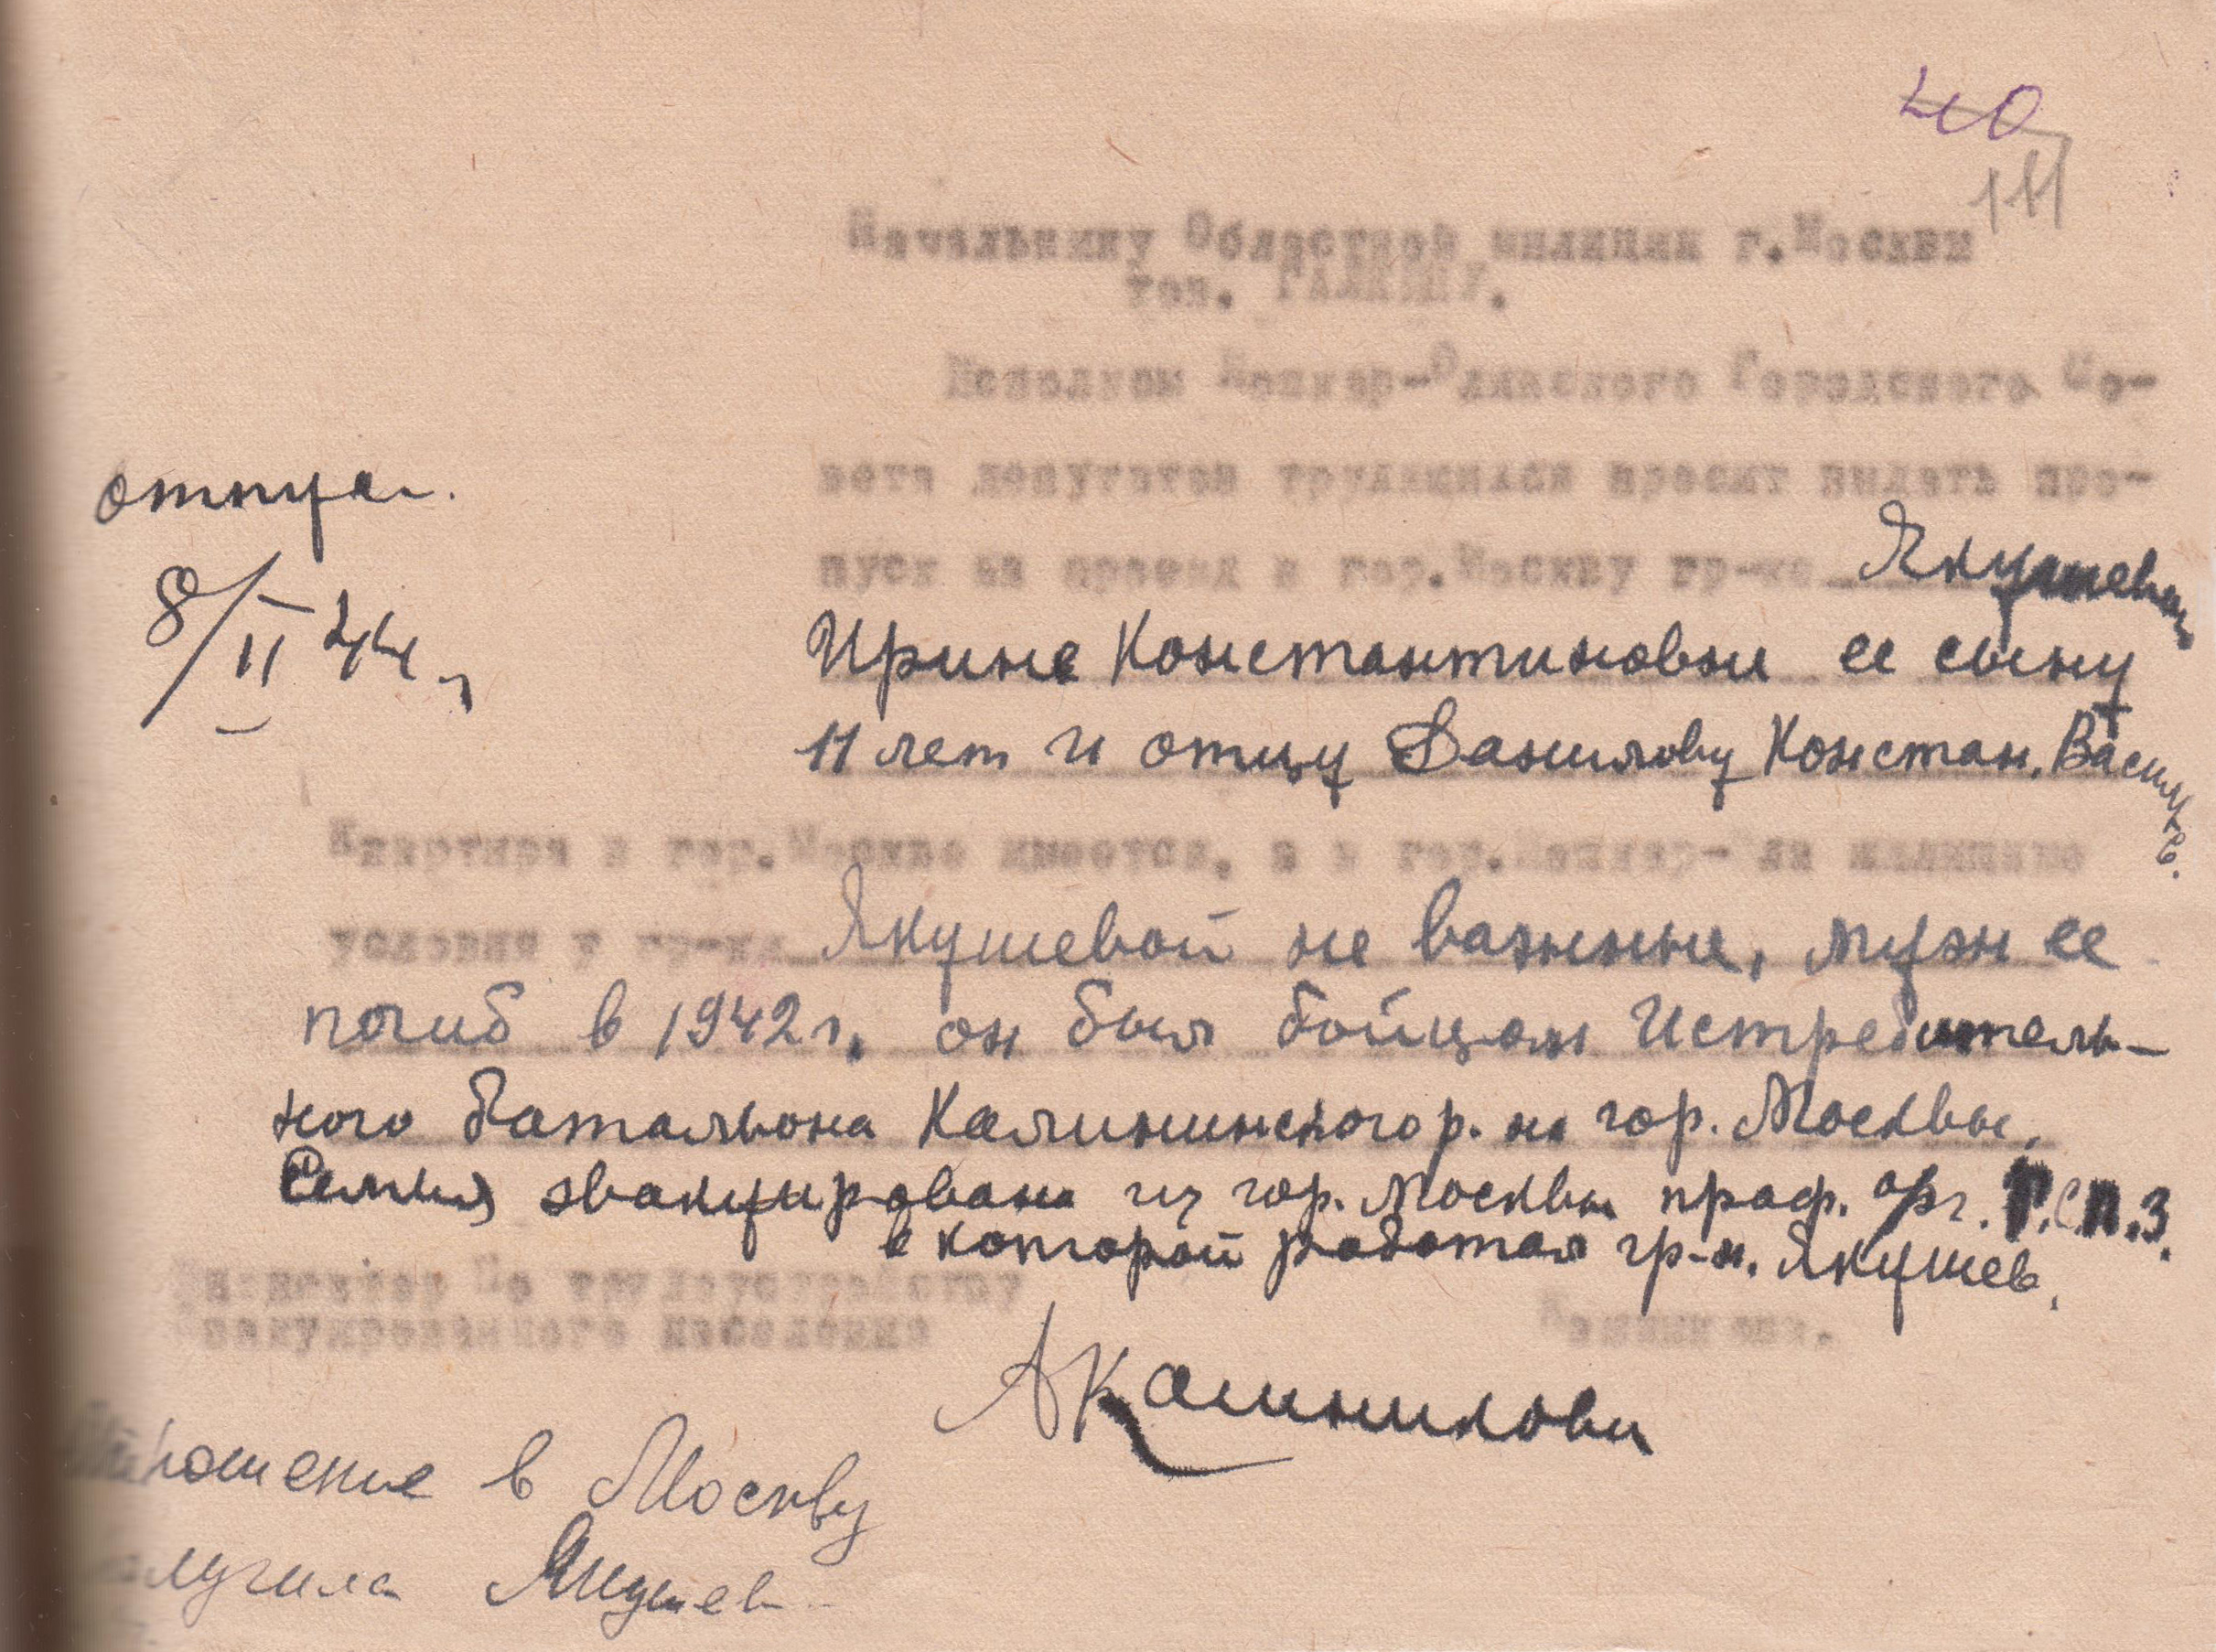 40
111
Начальнику Областной милиции г.Москвы
тов. ГАЛКИНУ.
Исполком Йошкар-Олинского Городского Со-
вета депутатов трудящихся просит выдать про-
пуск на проезд в гор.Москву гр-ке Якушевой
Ирине Константиновы ее сыну
11 лет и отцу Данилову Констан. Васильев.
отпуск.
8/II 44 г
Квартира в гор.Москве имеется, а в гор.Йошкар-Оле жилищные
условия у гр-ки Якушевой не важные, муж ее
погиб в 1942 г. он был бойцом Истребитель-
ного батальона Калининского р. на гор. Москвы.
Семья эвакуирована из гор. Москвы проф. орг. Р.С.П.З.
в которой работал гр-н. Якушев.
Инспектор По трудоустройству
эвакуированного населения
АКалинникова
Отношение в Москву
получила Якушев